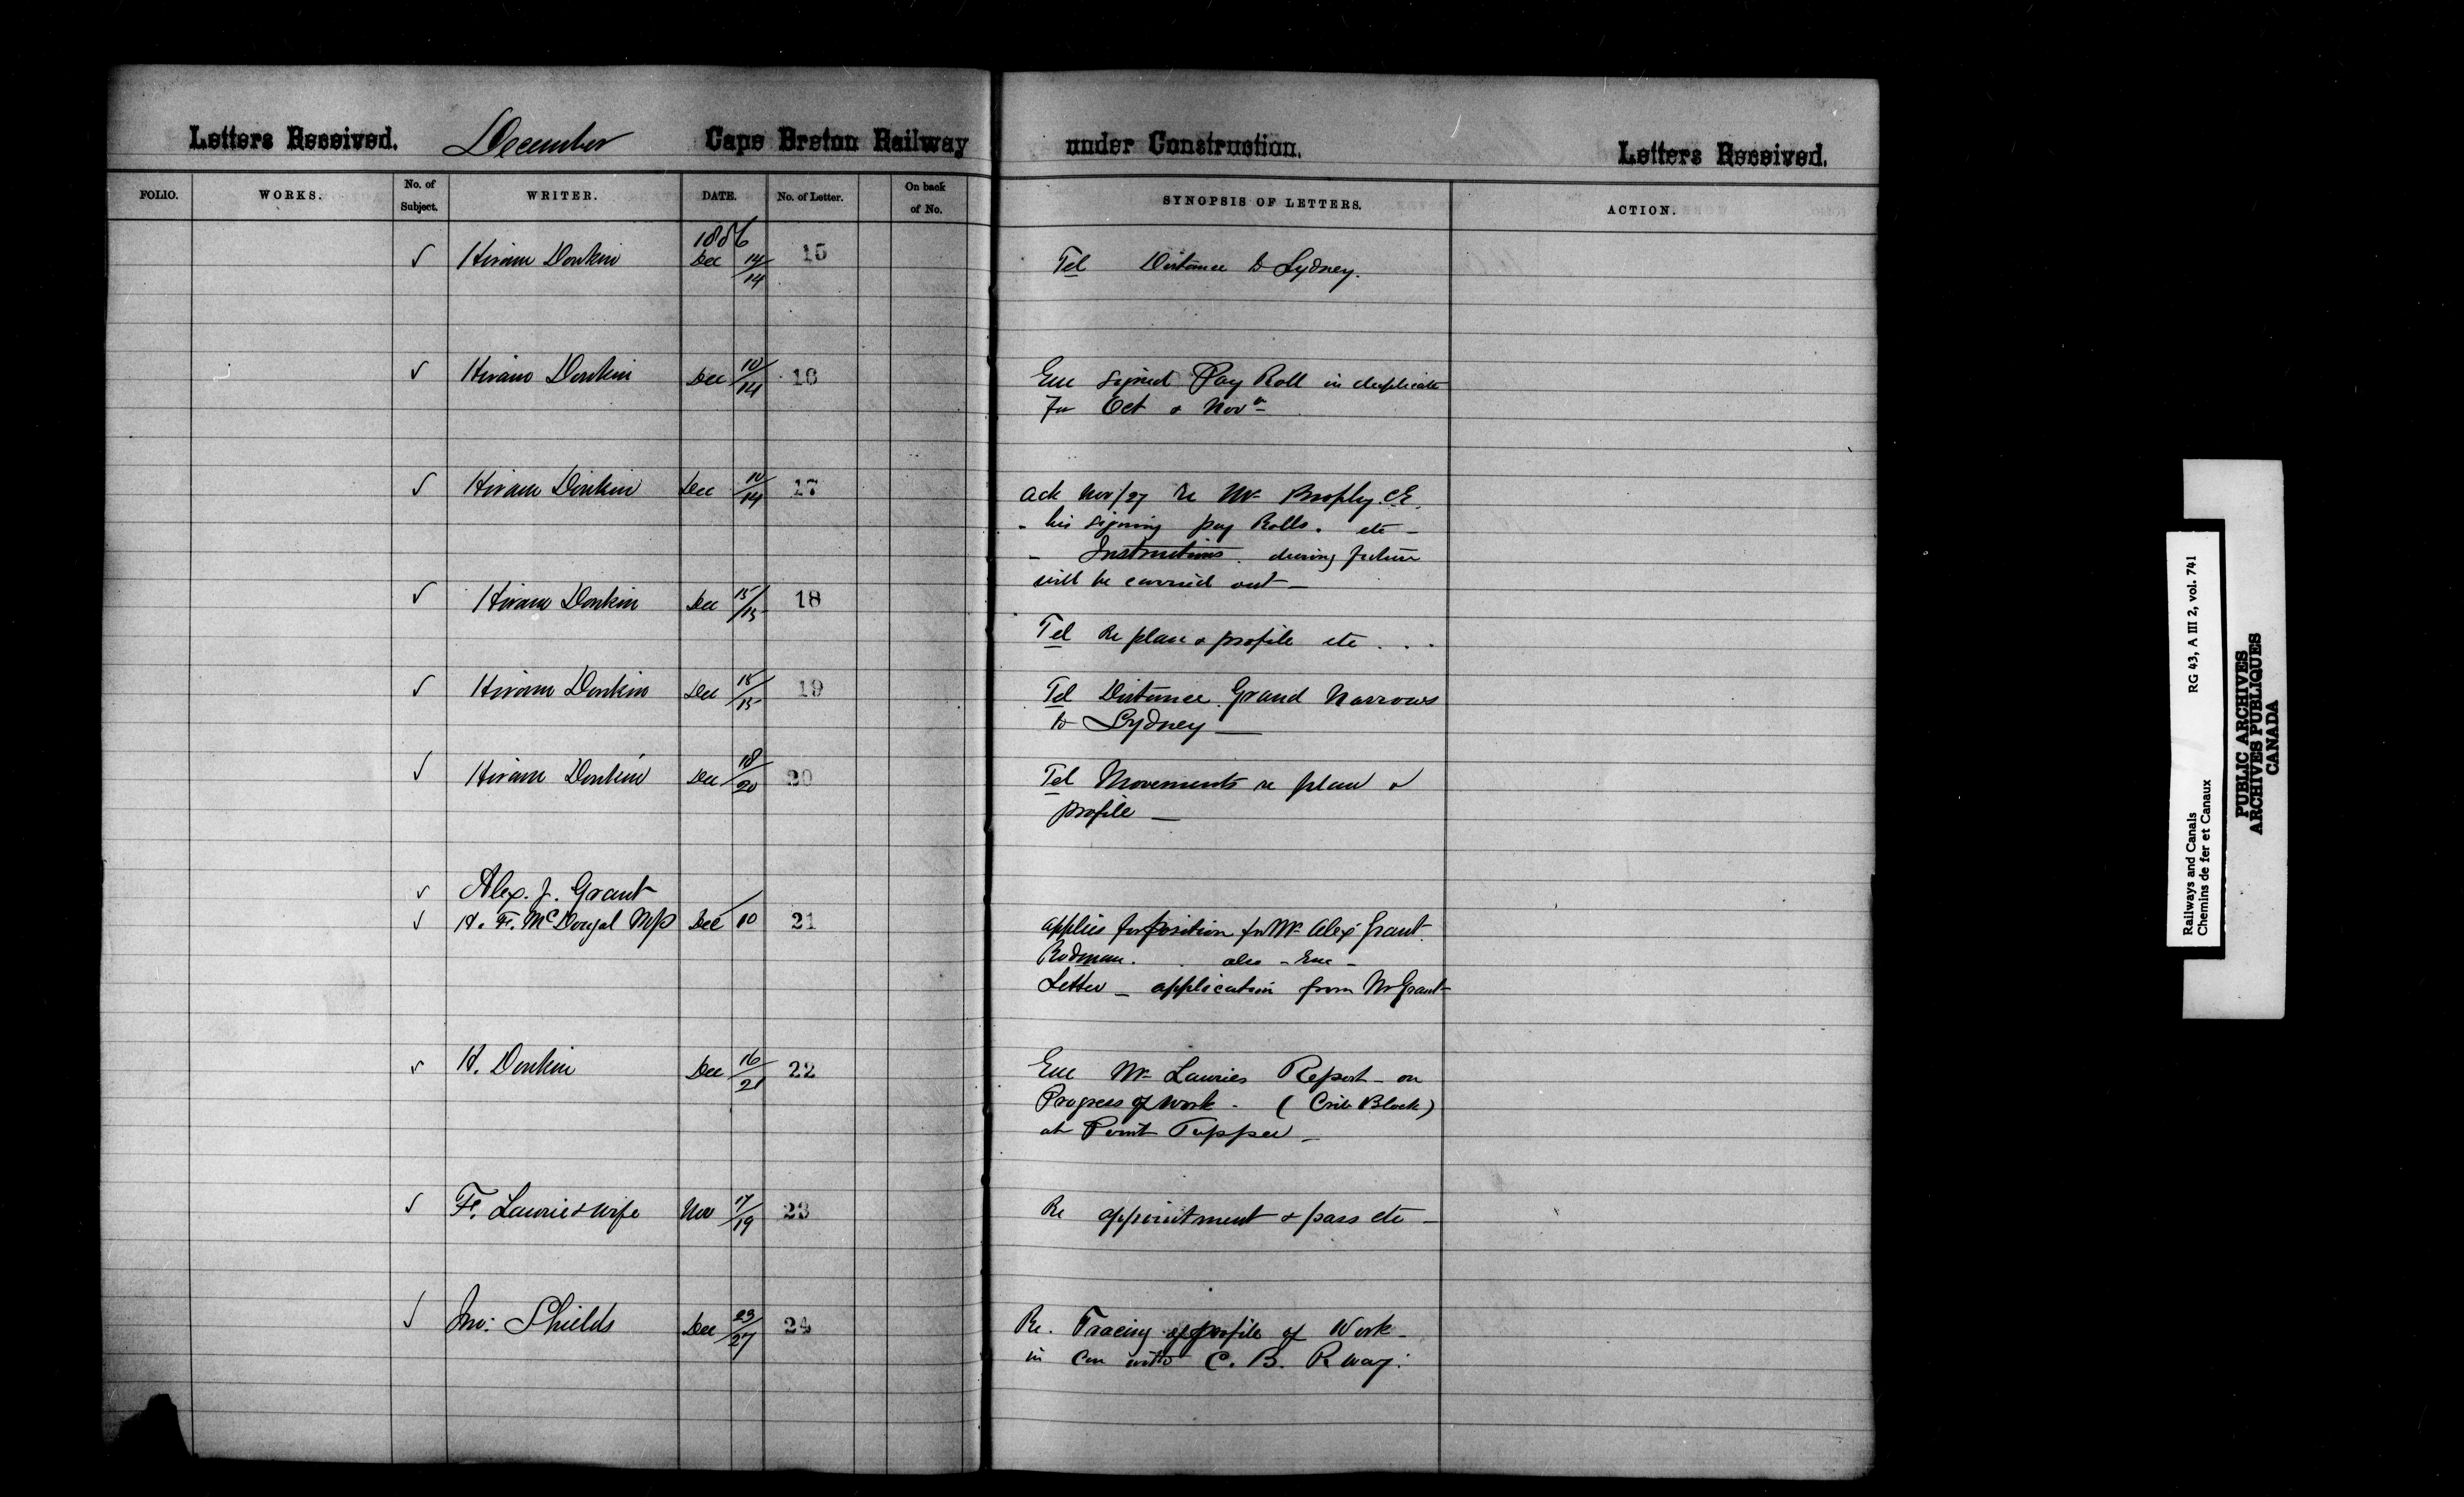 Letters Received. December Cape Breton Railway under Construction. Letters Received.
FOLIO. WORKS. No. of Subject. WRITER. DATE. No. of Letter. On back of No. SYNOPSIS OF LETTERS. ACTION.
1886
✓ Hiram Donkin Dec 14/14 15 Tel Distance to Sydney.
✓ Hiram Donkin Dec 10/14 16 Enc signed Pay Roll in duplicate
for Oct & Novr
✓ Hiram Donkin Dec 10/14 17 Ack Nov/27 re Mr Brophy C.E.
- his signing pay Rolls. etc -
- Instructions during future
will be carried out -
✓ Hiram Donkin Dec 15/15 18 Tel Re plan & profile etc . . .
✓ Hiram Donkin Dec 15/15 19 Tel Distance Grand Narrows
to Sydney -
✓ Hiram Donkin Dec 18/20 20 Tel Movements re plan &
profile -
✓ Alex. J. Grant
✓ H. F. McDougal MP Dec 10 21 applies for position for Mr Alex Grant
Rodman. also - Enc -
Letter - application from Mr Grant
✓ H. Donkin Dec 16/21 22 Enc Mr Lauries Report - on
Progress of work - (Crib Block)
at Point Tupper -
✓ F. Laurie & wife Nov 17/19 23 Re appointment & pass etc -
✓ Jno: Shields Dec 23/27 24 Re. Tracing of profile of Work -
in con with C. B. Rway.
Railways and Canals RG 43, A III 2, vol. 741
Chemins de fer et Canaux
PUBLIC ARCHIVES
ARCHIVES PUBLIQUES
CANADA